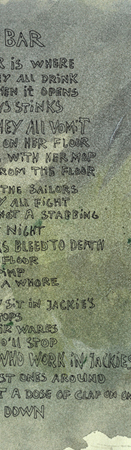 BAR
IS WHERE
ALL DRINK
IT OPENS
STINKS
THEY ALL VOMIT
ON HER FLOOR
WITH HER MOP
FROM THE FLOOR
THE SAILORS
ALL FIGHT
NOT A STABBING
NIGHT
BLEED TO DEATH
FLOOR
PIMP
A WHORE
SIT IN JACKIE'S
WARES
YOU'LL STOP
WHO WORK IN JACKIE'S
ONES AROUND
A DOSE OF CLAP ON
DOWN